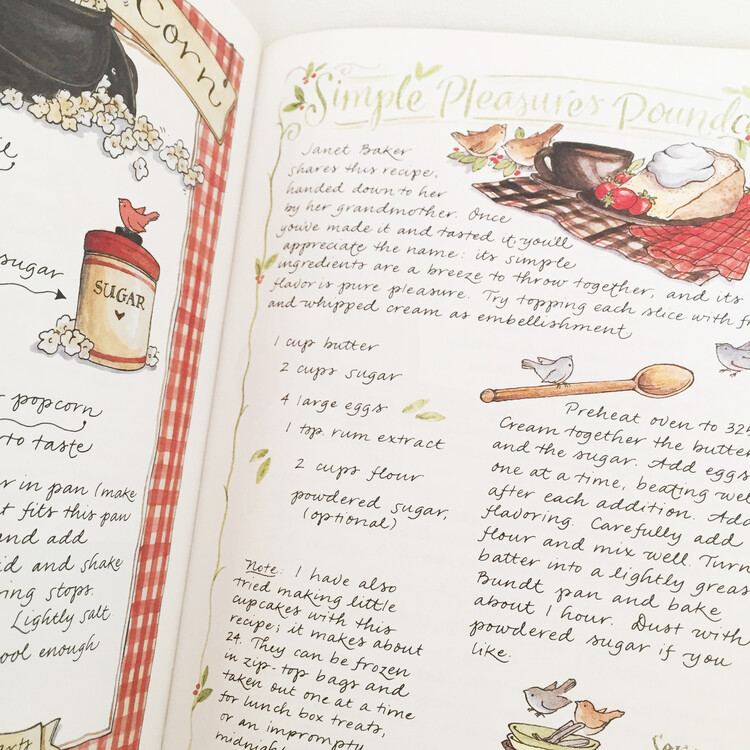 Corn'
sugar
SUGAR
popcorn
to taste
in pan (make
fits this pan
and add
and shake
stops.
Lightly salt.
enough
Simple Pleasures
Janet Baker
shares this recipe,
handed down to her
by her grandmother. Once
you've made it and tasted it, you'll
appreciate the name: its simple
ingredients are a breeze to throw together, and its
flavor is pure pleasure. Try topping each slice with
and whipped cream as embellishment.
1 cup butter
2 cups sugar
4 large eggs
1 tsp. rum extract
2 cups flour
powdered sugar,
(optional)
Preheat oven to 325
Cream together the butter
and the sugar. Add eggs
one at a time, beating
after each addition. Add
flavoring. Carefully add
flour and mix well. Turn
batter into a lightly
Bundt pan and bake
about 1 hour. Dust with
powdered sugar if you
like.
Note: I have also
tried making little
cupcakes with this
recipe; it makes about
24. They can be frozen
in zip-top bags and
taken out one at a time
for lunch box treats,
or an impromptu